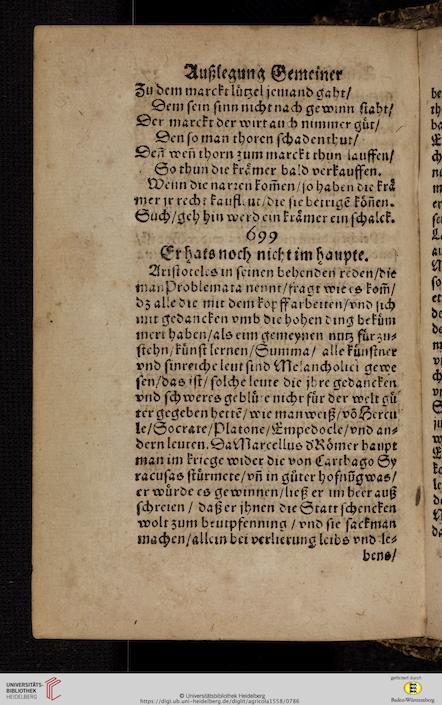 Außlegung Gemeiner
Zu dem marckt lützel jemand gaht/
Dem sein sinn nicht nach gewinn staht/
Der marckt der wirt auch nimmer güt/
Den so man thoren schaden thut/
Deñ weñ thorn zum marckt thun lauffen/
So thun die krämer bald verkauffen.
Wenn die narren kom̃en/so haben die krä
mer jr recht kauffleut/die sie betrigē kön̄en.
Such/geh hin werd ein krämer ein schalck.
699
Er hats noch nicht im haupte.
Aristoteles in seinen behenden reden/die
man Problemata nennt/fragt wie es kom̃/
dz alle die mit dem kopff arbeiten/vnd sich
mit gedancken vmb die hohen ding beküm
mert haben/als eim gemeynen nutz für zu⸗
stehn/künst lernen/Summa/ alle künstner
vnd sinreiche leut sind Melancholici gewe
sen/das ist/solche leute die jhre gedancken
vnd schweres geblüte nicht für der welt gü
ter gegeben hettē/wie man weiß/vō Hercu
le/Socrate/Platone/Empedocle/vnd an⸗
dern leuten. Da Marcellus d' Römer haupt
man im kriege wider die von Carthago Sy
racusas stürmete/vn̄ in güter hofnūg was/
er würde es gewinnen/ließ er im heer auß
schreien / daß er jhnen die Statt schencken
wolt zum beutpfenning / vnd sie sackman
machen/allein bei verlierung leibs vnd le⸗
bens/
UNIVERSITÄTS-
BIBLIOTHEK
HEIDELBERG
© Universitätsbibliothek Heidelberg
https://digi.ub.uni-heidelberg.de/diglit/agricola1558/0786
gefördert durch
Baden-Württemberg